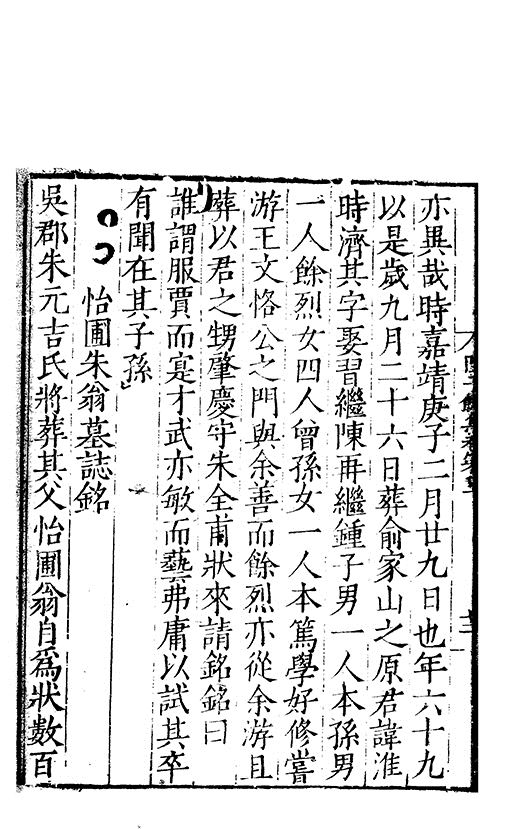 亦異哉時嘉靖庚子二月廿九日也年六十九
以是歲九月二十六日葬俞家山之原君諱淮
時濟其字娶習繼陳再繼鍾子男一人本孫男
一人餘烈女四人曾孫女一人本篤學好修嘗
游王文恪公之門與余善而餘烈亦從余游且
葬以君之甥肇慶守朱全甫狀來請銘銘曰
誰謂服賈而寔才武亦敏而藝弗庸以試其卒
有聞在其子孫
怡圃朱翁墓誌銘
吳郡朱元吉氏將葬其父怡圃翁自爲狀數百